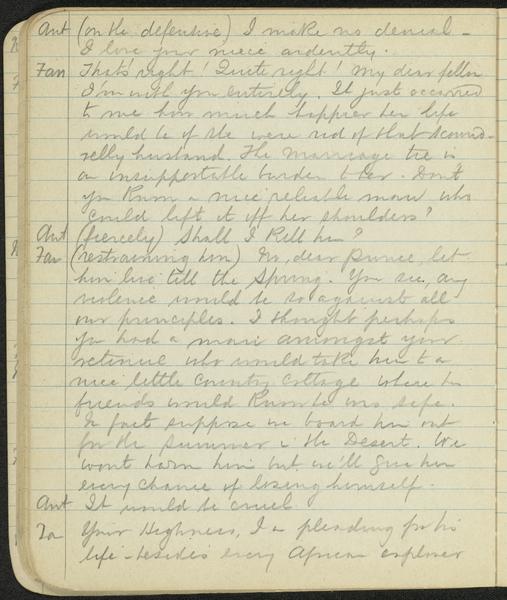 Ant (on the defensive) I make no denial –
I love your niece ardently.
Fan That's right! Quite right! My dear fellow
I'm with you entirely. It just occurred
to me how much happier her life
would be if she were rid of that scound-
relly husband. The marriage tie is
an insupportable burden to her. Don't
you know a nice reliable man who
could lift it off her shoulders?
Ant (fiercely) Shall I kill him?
Fan (restraining him) No, dear Prince, let
him live till the Spring. You see, any
violence would be so against all
our principles. I thought perhaps
you had a man amongst your
retinue who would take him to a
nice little country cottage where his
friends would know he was safe.
In fact suppose we board him out
for the summer in the Desert. We
won't harm him but we'll give him
every chance of losing himself.
Ant It would be cruel
Fa Your Highness, I am pleading for his
life – besides every African explorer